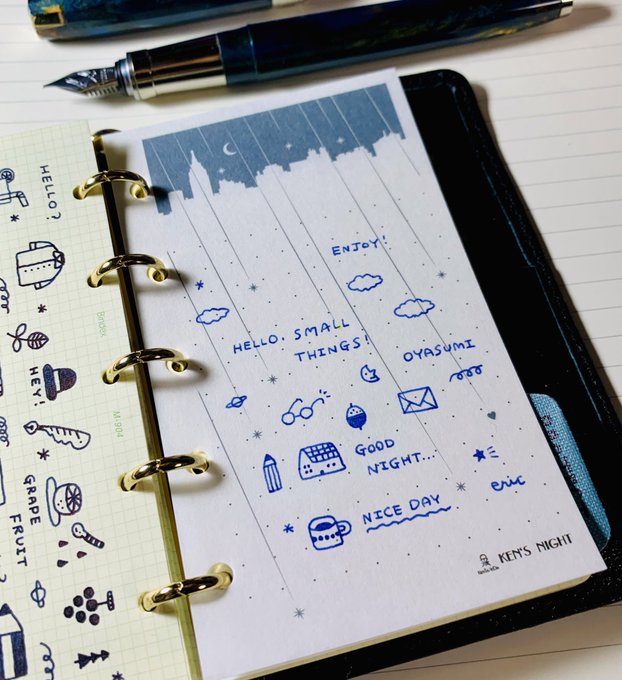 HELLO?
HEY!
GRAPE
FRUIT
Bindex
M-904
ENJOY!
HELLO, SMALL
THINGS!
OYASUMI
GOOD
NIGHT...
NICE DAY
eric
KEN'S NIGHT